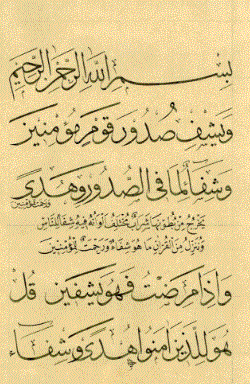 بسم الله الرحمن الرحيم
ويشف صدور قوم مؤمنين
وشفاء لما في الصدور وهدى ورحمة للمؤمنين
يخرج من بطونها شراب مختلف ألوانه فيه شفاء للناس
وننزل من القرآن ما هو شفاء ورحمة للمؤمنين
وإذا مرضت فهو يشفين قل
هو للذين آمنوا هدى وشفاء